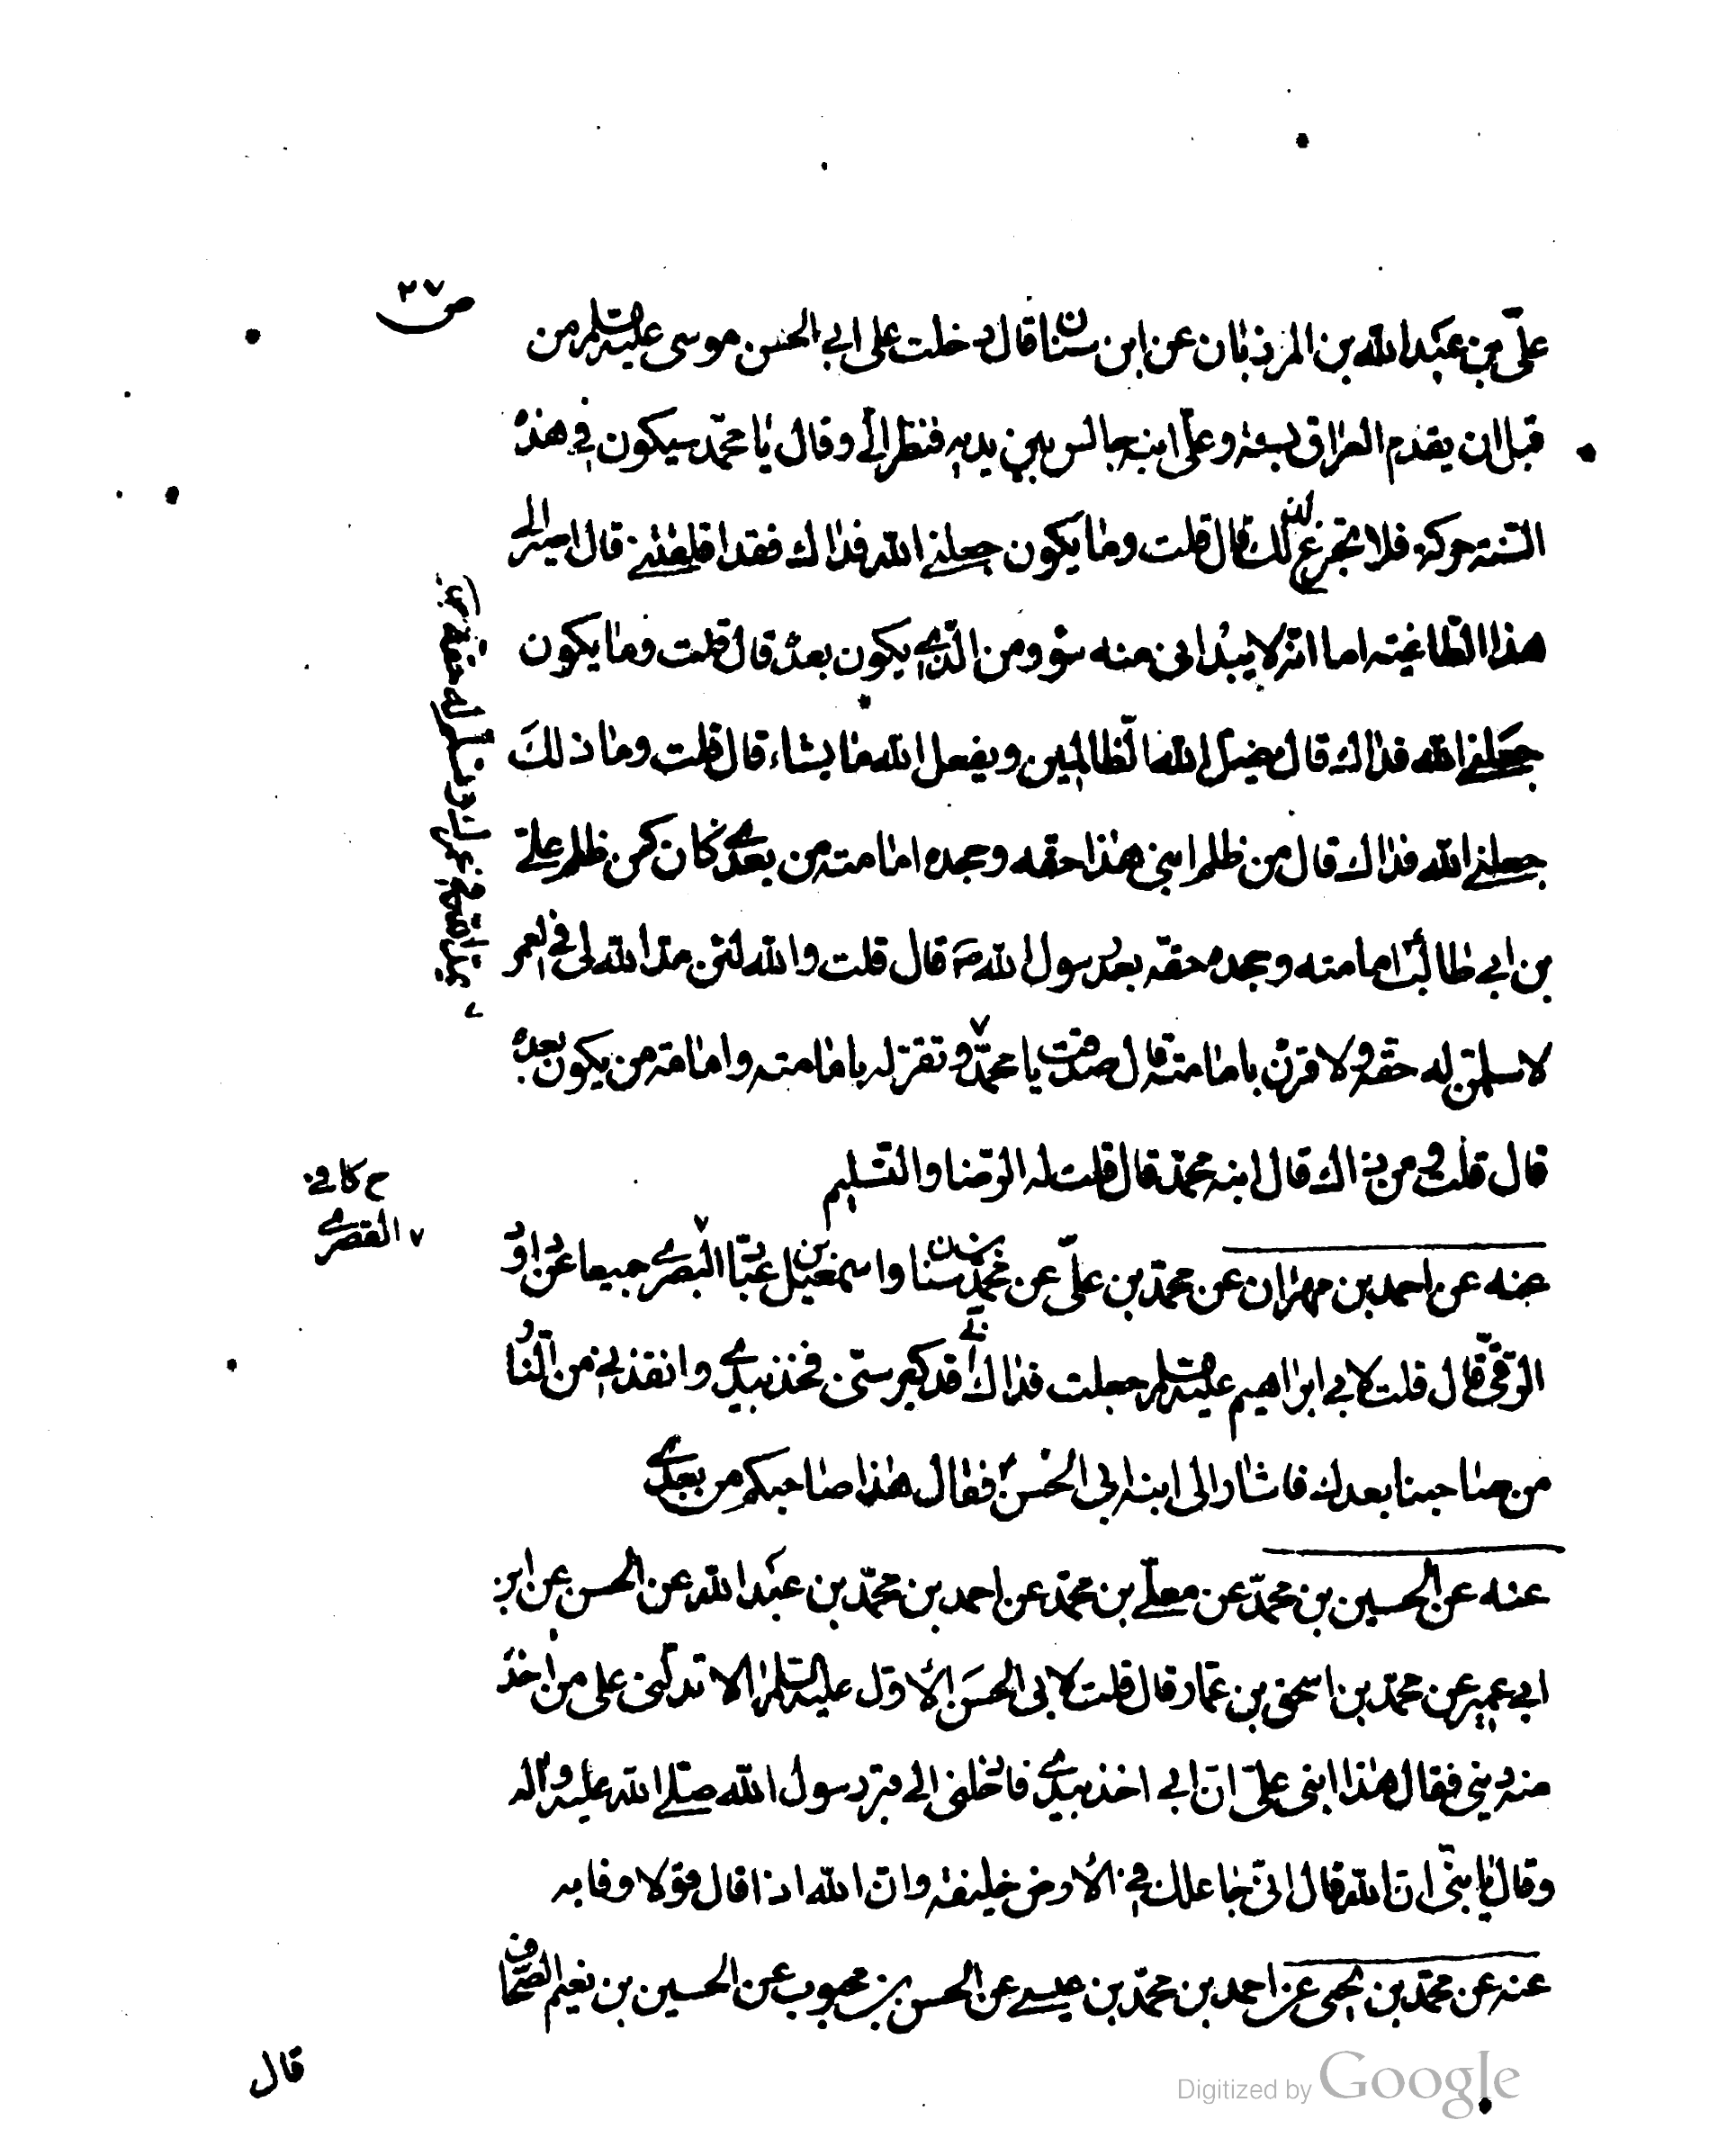 ص ٣٧
علّي بن عبد الله بن المرزبان عن ابن سنان قال دخلت على ابي الحسن موسى عليه السلم من
قبل ان يقدم العراق بسنة وعلّى ابنه جالس بين يديه فنظر الّي وقال يا محمّد سيكون في هذه
السّنة حركة فلا تجزع لذلك قال قلت وما يكون جعلني الله فداك فقد اقلقتني قال اصير الى
هذا الطّاغية اما انّه لا يبدانى منه سؤ ومن الّذي يكون بعده قال قلت وما يكون
جعلني الله فداك قال يضلّ الله الظّالمين ويفعل الله ما يشاء قال قلت وما ذلك
جعلني الله فداك قال من ظلم ابني هذا حقه وجحده امامته من بعدي كان كمن ظلم علّي
بن ابي طالب امامته وجحده حقّه بعد رسول الله ص قال قلت والله لئن مدّ الله لى في العمر
لاسلّمنّ له حقّه ولاقرنّ بامامته قال صدقت يا محمّد وتقرّ له بامامته وامامة من يكون بعده
قال قلت ومن ذاك قال ابنه محمّد قال قلت له الرّضا والتّسليم
ح كافي
القصري
عنه عن احمد بن مهران عن محمّد بن علّي عن محمّد بن سنان واسمعيل بن عبّاد البصري جميعا عن داود
الرّقّي قال قلت لابي ابراهيم عليه السلم جعلت فداك انّي قد كبر سنّى فخذ بيدي وانقذني من النّار
من صاحبنا بعدك فاشار الى ابنه ابي الحسن فقال هذا صاحبكم من بعدي
عنه عن الحسين بن محمّد عن معلّي بن محمّد عن احمد بن محمّد بن عبد الله عن الحسن عن ابن
ابي عمير عن محمّد بن اسحق بن عمّار قال قلت لابى الحسن الاوّل عليه السلم الا تدلّنى على من اخذ
منه ديني فقال هذا ابنى علّي انّ ابي اخذ بيدي فادخلني الى قبر رسول الله صلّي الله عليه وآله
وقال يا بنّي ان الله قال انّي جاعلك في الارض خليفة وانّ الله اذا قال قولا وفا به
عنه عن محمّد بن يحيى عن احمد بن محمّد بن عيسي عن الحسن بن محبوب عن الحسين بن نعيم الصّحّاف
قال
Digitized by Google